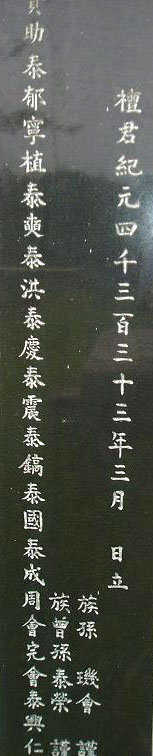 檀君紀元四千三百三十三年三月 日立
族孫 璣會 謹
族曾孫泰榮 謹
助 泰郁 寧植 泰奭 泰洪 泰慶 泰震 泰鎬 泰國 泰成 周會 完會 泰興 仁